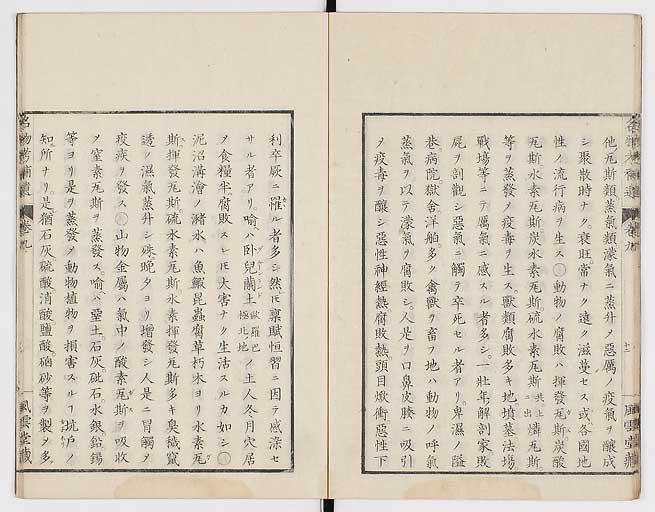 他瓦斯類蒸氣類濛氣ニ蒸升ノ惡厲ノ疫氣ヲ釀成
シ聚散時ナク衰旺常ナク遠ク滋蔓セス或各國地
性ノ流行病ヲ生ス○動物ノ腐敗ハ揮發瓦斯炭酸
瓦斯水素瓦斯炭水素瓦斯硫水素瓦斯共上ニ出燐瓦斯
等ヲ蒸發ノ疫毒ヲ生ス獸類腐敗多キ地墳墓法場
戰場等ニテ厲氣ニ感スル者多シ一壯年解剖家敗
屍ヲ剖觀シ惡氣ニ觸テ卒死セル者アリ卑濕ノ隘
巷病院獄舍洋舶多ク禽獸ヲ畜フ地ハ動物ノ呼氣
蒸氣ヲ以テ濛氣ヲ腐敗シ人是ヲ口鼻皮膚ニ吸引
ノ疫毒ヲ釀シ惡性神經熱腐敗熱頭目㷀衝惡性下
利卒厥ニ罹ル者多シ然𪜈稟賦恒習ニ因テ感染セ
サル者アリ喻ハ臥兒蘭土歐羅巴極北地ノ土人冬月穴居
ノ食糧半腐敗スレ𪜈大害ナク生活スルカ如シ○
泥沼溝澮ノ瀦水ハ魚鰕昆蟲腐草朽木ヨリ水素瓦
斯揮發瓦斯硫水素瓦斯揮發瓦斯多キ臭穢竄
透ノ濕氣蒸升シ殊晩夕ヨリ增發シ人是ニ冒觸ノ
疫疾ヲ發ス○山物金屬ハ氣中ノ酸素瓦斯ヲ吸收
ノ窒素瓦斯ヲ蒸發ス喻ハ堊土石灰砒石水銀鉛錫
等ヨリ是ヲ蒸發ノ動物植物ヲ損害スルヿ坑戸ノ
知所ナリ是猶石灰硫酸消酸鹽酸硇砂等ヲ製ク多
卷九
風雲堂藏
名物考補遺
卷九
風雲堂藏